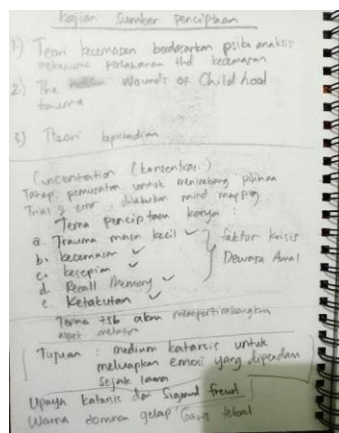 Kajian Sumber Penciptaan
1) Teori kecemasan berdasarkan psikoanalisis
mekanisme pertahanan thd kecemasan
2) The Wounds of Childhood
trauma
3) Teori kepribadian
Concentration (konsentrasi)
Tahap pemusatan untuk menimbang pilihan
Trial & error dilakukan mind mapping
Tema penciptaan karya :
a. Trauma masa kecil ✓
b. kecemasan ✓
c. kesepian ✓
d. Recall Memory ✓
e. Ketakutan ✓
faktor krisis
Dewasa Awal
Tema tsb akan mempertimbangkan
aspek
Tujuan : medium katarsis untuk
meluapkan emosi yang dipendam
sejak lama
Upaya katarsis dr Sigmund freud
Warna dominan gelap Garis tebal